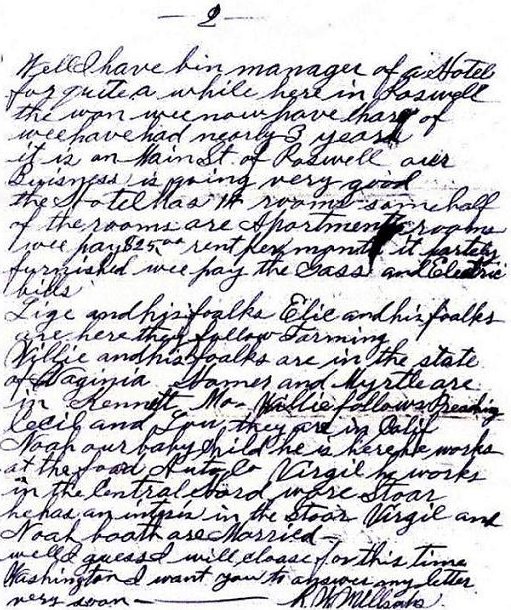 — 2 —
Well I have bin manager of a Hotel
for quite a while here in Roswell
the won wee now have charg of
wee have had nearly 3 years
it is on Main St. of Roswell our
Buisness is going very good
the Hotel has 14 rooms som half
of the rooms are Apartment rooms
wee pay $25.00 rent per month it partely
furnished wee pay the Gass and Electric
bills
Lige and his foalks Elic and his foalks
are here they follow Farming
Willie and his foalks are in the state
of Vaginia Homer and Myrtle are
in Kennett Mo- Willie follows Preaching
Cecil and Lou, they are in Calif
Noah our baby child he is here he works
at the foad Auto Co Virgil he works
in the Central Hard ware Stoar
he has an interes in the Stoar Virgil and
Noah boath are Married-
well I guess I will cloase for this time
Washington I want you to answer my letter
very soon - R. W. Millsaps